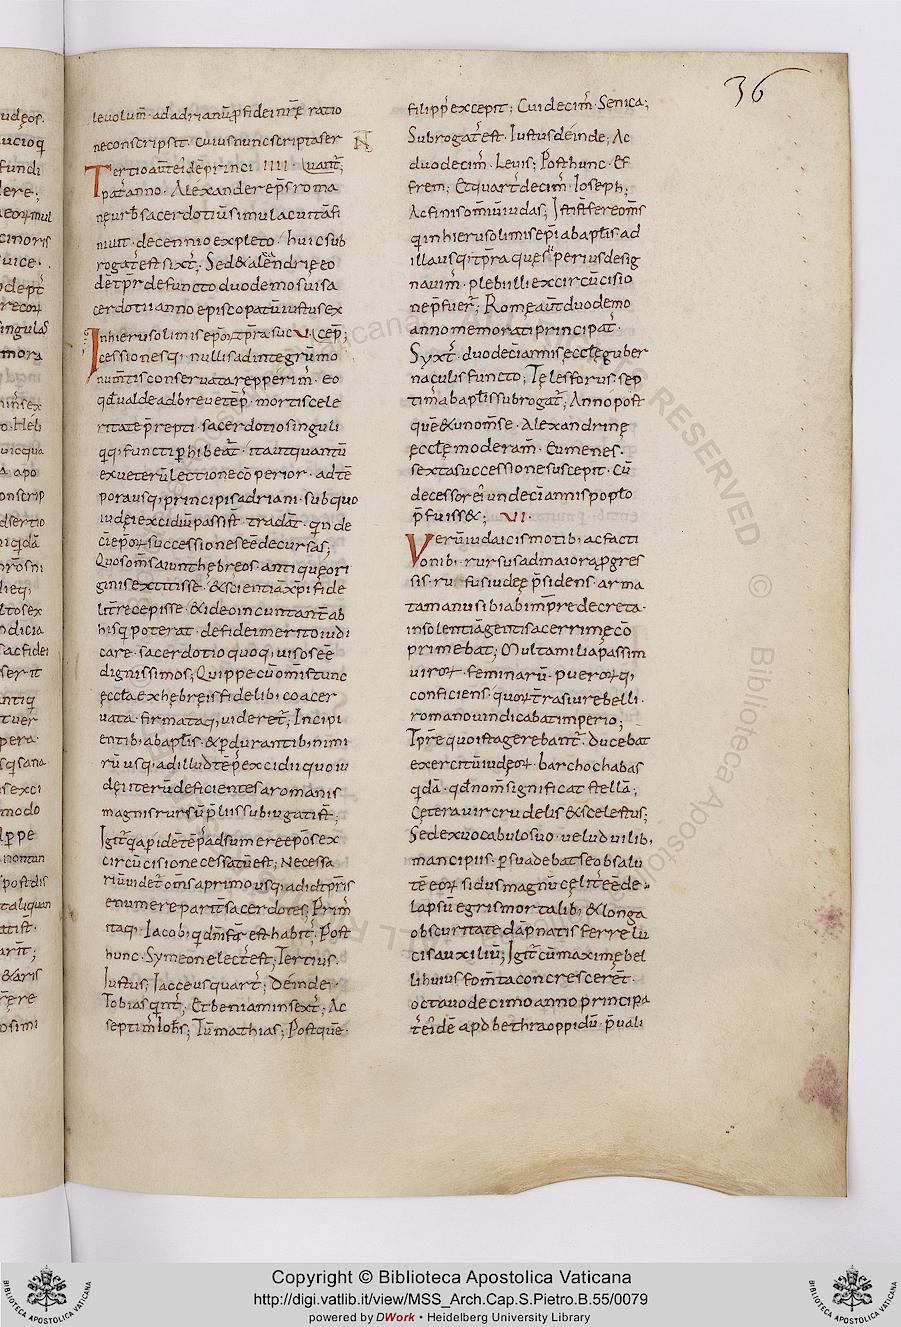 36
leuolum̄· ad adrianū p̄ fidei nr̄ę ratio
neconscripsit· cuius nunc scripta ser
Tertio aut̄ ei dē princi IIII· uant̄;
pat᷒ anno· Alexander ep̄s roma
nę urb᷒ sacerdotiū simul ac uitā fi
niuit· decennio expleto· huic sub
rogat᷒ est sixt᷒; Sed & alexandrię eo
dē tp̄r defuncto duodemo sui sa
cerdotii anno episcopatū iustus ex
In hierusolimis ep̄oꝝ tp̄ra suc VI cep̄;
cessionesq; nullis ad integrū mo
num̄tis conservata repperim᷒· eo
qđ ualde ad breue tēp᷒· mortis cele
ritate p̄repti· sacerdotio singuli
qq; functi ꝑhibeat᷒· itaut quantū
ex ueterū lectione cōperior· ad tē
pora usq; principis adriani· sub quo
iudęi excidiū passi st̄· tradat᷒· qn de
cī ep̄oꝝ successiones eē decursas;
Quos om̄s aiunt hębreos· antiquę ori
ginis extitisse· & scientiā xp̄i fide
lit᷒ recepisse· & ideo incunctant᷒ ab
his q poterat· de fidei merito iudi
care· sacerdotio quoq; uisos eē
dignissimos; Quippe cū om̄is tunc
ęccła ex hębreis fidelib; coacer
uata· firmataq; uideret᷒; Incipi
entib; ab apłis· & ꝑdurantib; nimi
rū usq; ad illud tēp᷒ excidii quo iu
dęi iterū deficientes a romanis
magnis rursū p̄liis subiugati st̄;
Igit᷒ q apđ idē tēp᷒ adsumere ep̄os ex
circū cisione cessatū est; Necessa
riū uidet᷒ om̄s a primo usq; ad idt̄ p̄ris
enumerepart̄ sacerdotes; Prim᷒
itaq; Iacob; q dn̄i fr̄ est habit᷒; Post
hunc· Symeon elect᷒ est; Tertius·
Iustus; Iacceus quart᷒; Deinde·
Tobias qint᷒; Et beniamin sext᷒; Ac
septim᷒ Ioh̄s; Tū mathias; Post quē·
filipp᷒ excepit; Cui decim᷒· Senica;
Subrogat᷒ est· Iustus deinde; Ac
duodecim᷒· Leuis; Post hunc· Ef
frem; Et quart᷒ decim᷒ Ioseph;
Ac finis omiū iudas; Isti st̄ fere om̄s
q in hierusolimis ep̄i ab apłis ad
illa usq; tp̄ra quę superius desig
nauim᷒· plebi illi ex circūcisio
ne p̄fuer᷒; Romę aut̄ duodemo
anno memorati principat᷒·
Syxt᷒· duodeciannis ęcclę guber
naculis functo; Telesforus· sep
tim᷒ ab apłis subrogat᷒; Anno post
quē & uno m̄se· Alexandrinę
ęcclę moderam᷒· Eumenes·
sexta successione suscepit· cū
decessor ei undeciannis popło
p̄fuiss&; VI·
Verū iudaicis motib; ac facti
onib; rursus ad maiora ꝓgres
sis· ru fus iudęę p̄sidens· arma
ta manu sibi ab imp̄re decreta·
insolentiā gentis acerrime cō
primebat; Multa milia passim
uiroꝝ· feminarū· pueroꝝq;
conficiens· quoꝝ t̄ras iure belli·
romano uindicabat imperio;
Tp̄re quo ista gerebant᷒· ducebat
exercitū iudęoꝝ· barchochabas
qdā· qđ nom̄ significat stellā;
Cętera uir crudelis & scelestus;
Sed ex uocabulo suo· uelud uilib;
mancipiis· ꝑsuadebat se ob salu
tē eoꝝ sidus magnū celit᷒ eē de
lapsū ęgris mortalib; & longa
obscuritate dāpnatis ferre lu
cis auxiliū; Igit᷒ cū maxime bel
li huius fom̄ta concrescerēt·
octauo decimo anno principa
t᷒ ei dē apđ bethraoppidū· p̄uali
Copyright © Biblioteca Apostolica Vaticana
http://digi.vatlib.it/view/MSS_Arch.Cap.S.Pietro.B.55/0079
powered by DWork • Heidelberg University Library